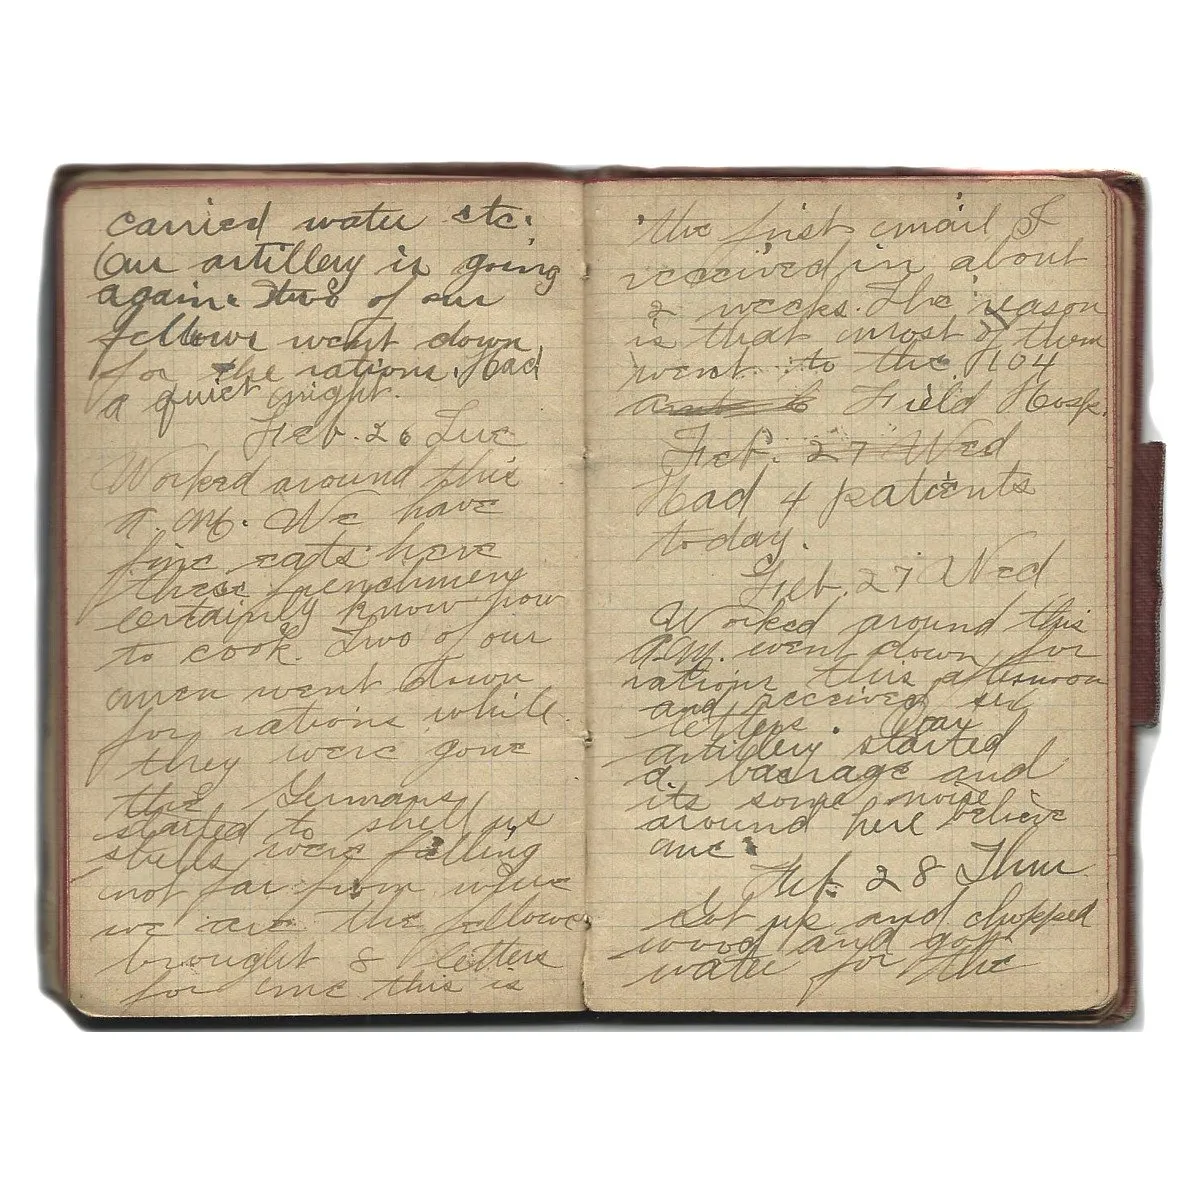 carried water etc.
Our artillery is going
again. Two of our
fellows went down
for the rations. Had
a quiet night.
Feb. 26 Tue
Worked around this
a.m. We have
fine eats here
these frenchmen
certainly know how
to cook. Two of our
men went down
for rations while
they were gone
the Germans
started to shell us
shells were falling
not far from where
we are the fellows
brought 8 letters
for me this is
the first mail I
received in about
2 weeks. The reason
is that most of them
went to the 104
Field Hosp.
Feb. 27 Wed
Had 4 patients
today.
Feb. 27 Wed
Worked around this
a.m. went down for
rations this afternoon
and received six
letters. Our
artillery started
a barrage and
its some noise
around here believe
me.
Feb. 28 Thur
Got up and chopped
wood and got
water for the